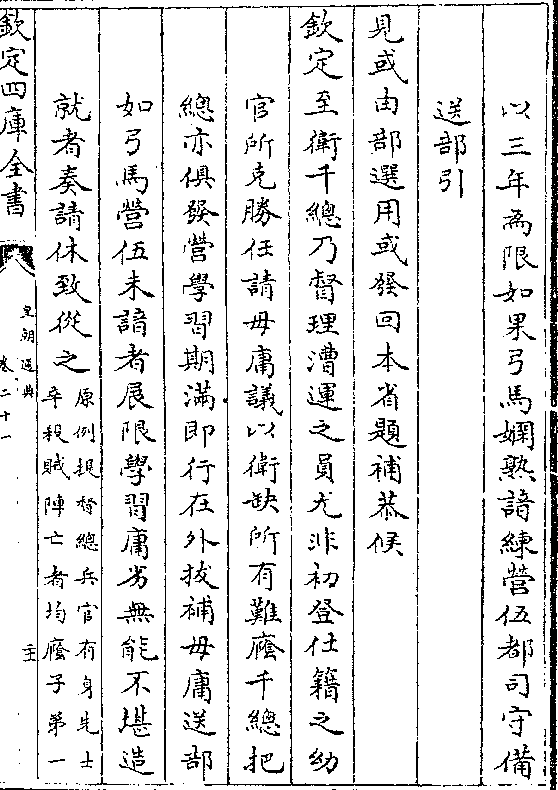 以三年為限如果弓馬嫻熟諳練營伍都司守備
送部引
見或由部選用或發回本省題補恭候
欽定至衛千總乃督理漕運之員尤非初登仕籍之幼
官所克勝任請毋庸議以衛缺所有難廕千總把
總亦俱發營學習期滿即行在外拔補毋庸送部
如弓馬營伍未諳者展限學習庸劣無能不堪造
就者奏請休致從之
原例提督總兵官有身先士
卒殺賊陣亡者均廕子弟一
欽定四庫全書
皇朝通典
卷二十一